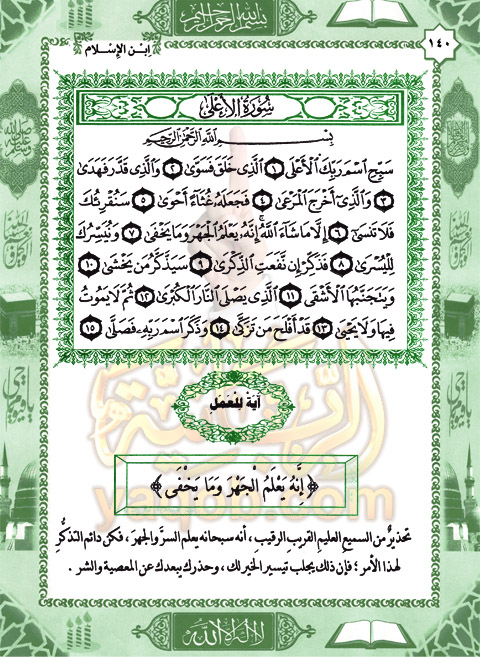 بسم الله الرحمن الرحيم
ابن الإسلام
١٤٠
سُورَةُ الأَعْلَى
بِسْمِ اللَّهِ الرَّحْمَنِ الرَّحِيمِ
سَبِّحِ اسْمَ رَبِّكَ الْأَعْلَى ١ الَّذِي خَلَقَ فَسَوَّى ٢ وَالَّذِي قَدَّرَ فَهَدَى
٣ وَالَّذِي أَخْرَجَ الْمَرْعَى ٤ فَجَعَلَهُ غُثَاءً أَحْوَى ٥ سَنُقْرِئُكَ
فَلَا تَنسَى ٦ إِلَّا مَا شَاءَ اللَّهُ إِنَّهُ يَعْلَمُ الْجَهْرَ وَمَا يَخْفَى ٧ وَنُيَسِّرُكَ
لِلْيُسْرَى ٨ فَذَكِّرْ إِن نَّفَعَتِ الذِّكْرَى ٩ سَيَذَّكَّرُ مَن يَخْشَى ١٠
وَيَتَجَنَّبُهَا الْأَشْقَى ١١ الَّذِي يَصْلَى النَّارَ الْكُبْرَى ١٢ ثُمَّ لَا يَمُوتُ
فِيهَا وَلَا يَحْيَى ١٣ قَدْ أَفْلَحَ مَن تَزَكَّى ١٤ وَذَكَرَ اسْمَ رَبِّهِ فَصَلَّى ١٥
آية للعمل
﴿ إِنَّهُ يَعْلَمُ الْجَهْرَ وَمَا يَخْفَى ﴾
yaqob.com
تحذيرٌ من السميع العليم القريب الرقيب ، أنه سبحانه يعلم السرَّ والجهرَ ، فكن دائم التذكُّر
لهذا الأمر ؛ فإن ذلك يجلب تيسير الخير لك ، وحذرك يبعدك عن المعصية والشر .
لا إله إلا الله